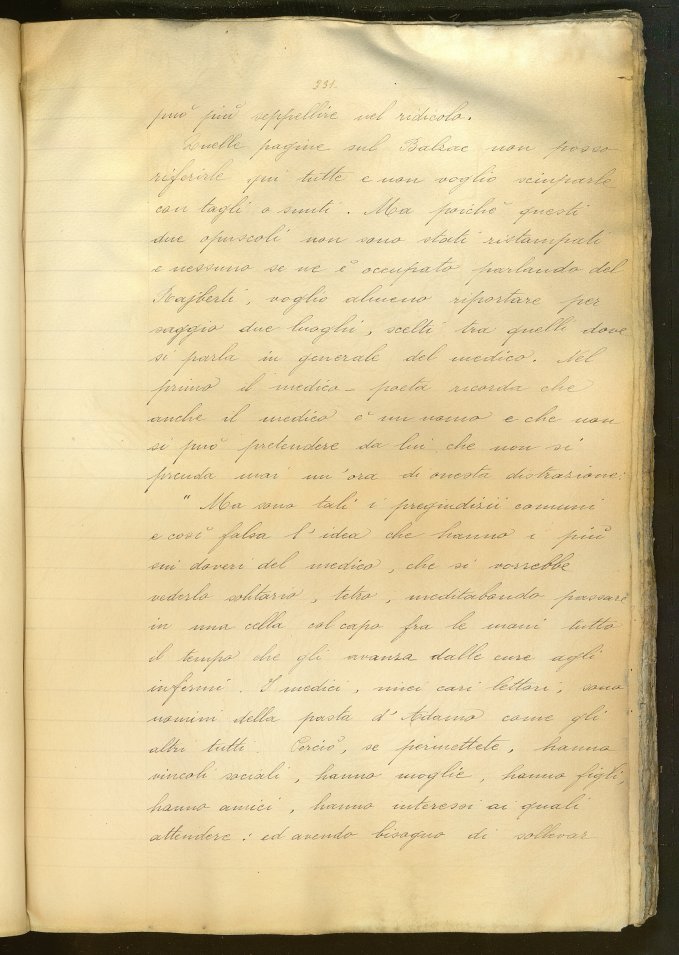 331.
può più seppellire nel ridicolo.
Quelle pagine sul Balzac non posso
riferirle qui tutte e non voglio sciuparle
con tagli o sunti. Ma poichè questi
due opuscoli non sono stati ristampati
e nessuno se ne è occupato parlando del
Rajberti, voglio almeno riportare per
saggio due luoghi, scelti tra quelli dove
si parla in generale del medico. Nel
primo il medico-poeta ricorda che
anche il medico è un uomo e che non
si può pretendere da lui che non si
prenda mai un'ora di onesta distrazione:
" Ma sono tali i pregiudizii comuni
e così falsa l'idea che hanno i più
sui doveri del medico, che si vorrebbe
vederlo solitario, tetro, meditabondo passare
in una cella col capo fra le mani tutto
il tempo che gli avanza dalle cure agli
infermi. I medici, miei cari lettori, sono
uomini della pasta d'Adamo come gli
altri tutti. Perciò, se permettete, hanno
vincoli sociali, hanno moglie, hanno figli,
hanno amici, hanno interessi ai quali
attendere: ed avendo bisogno di sollevar